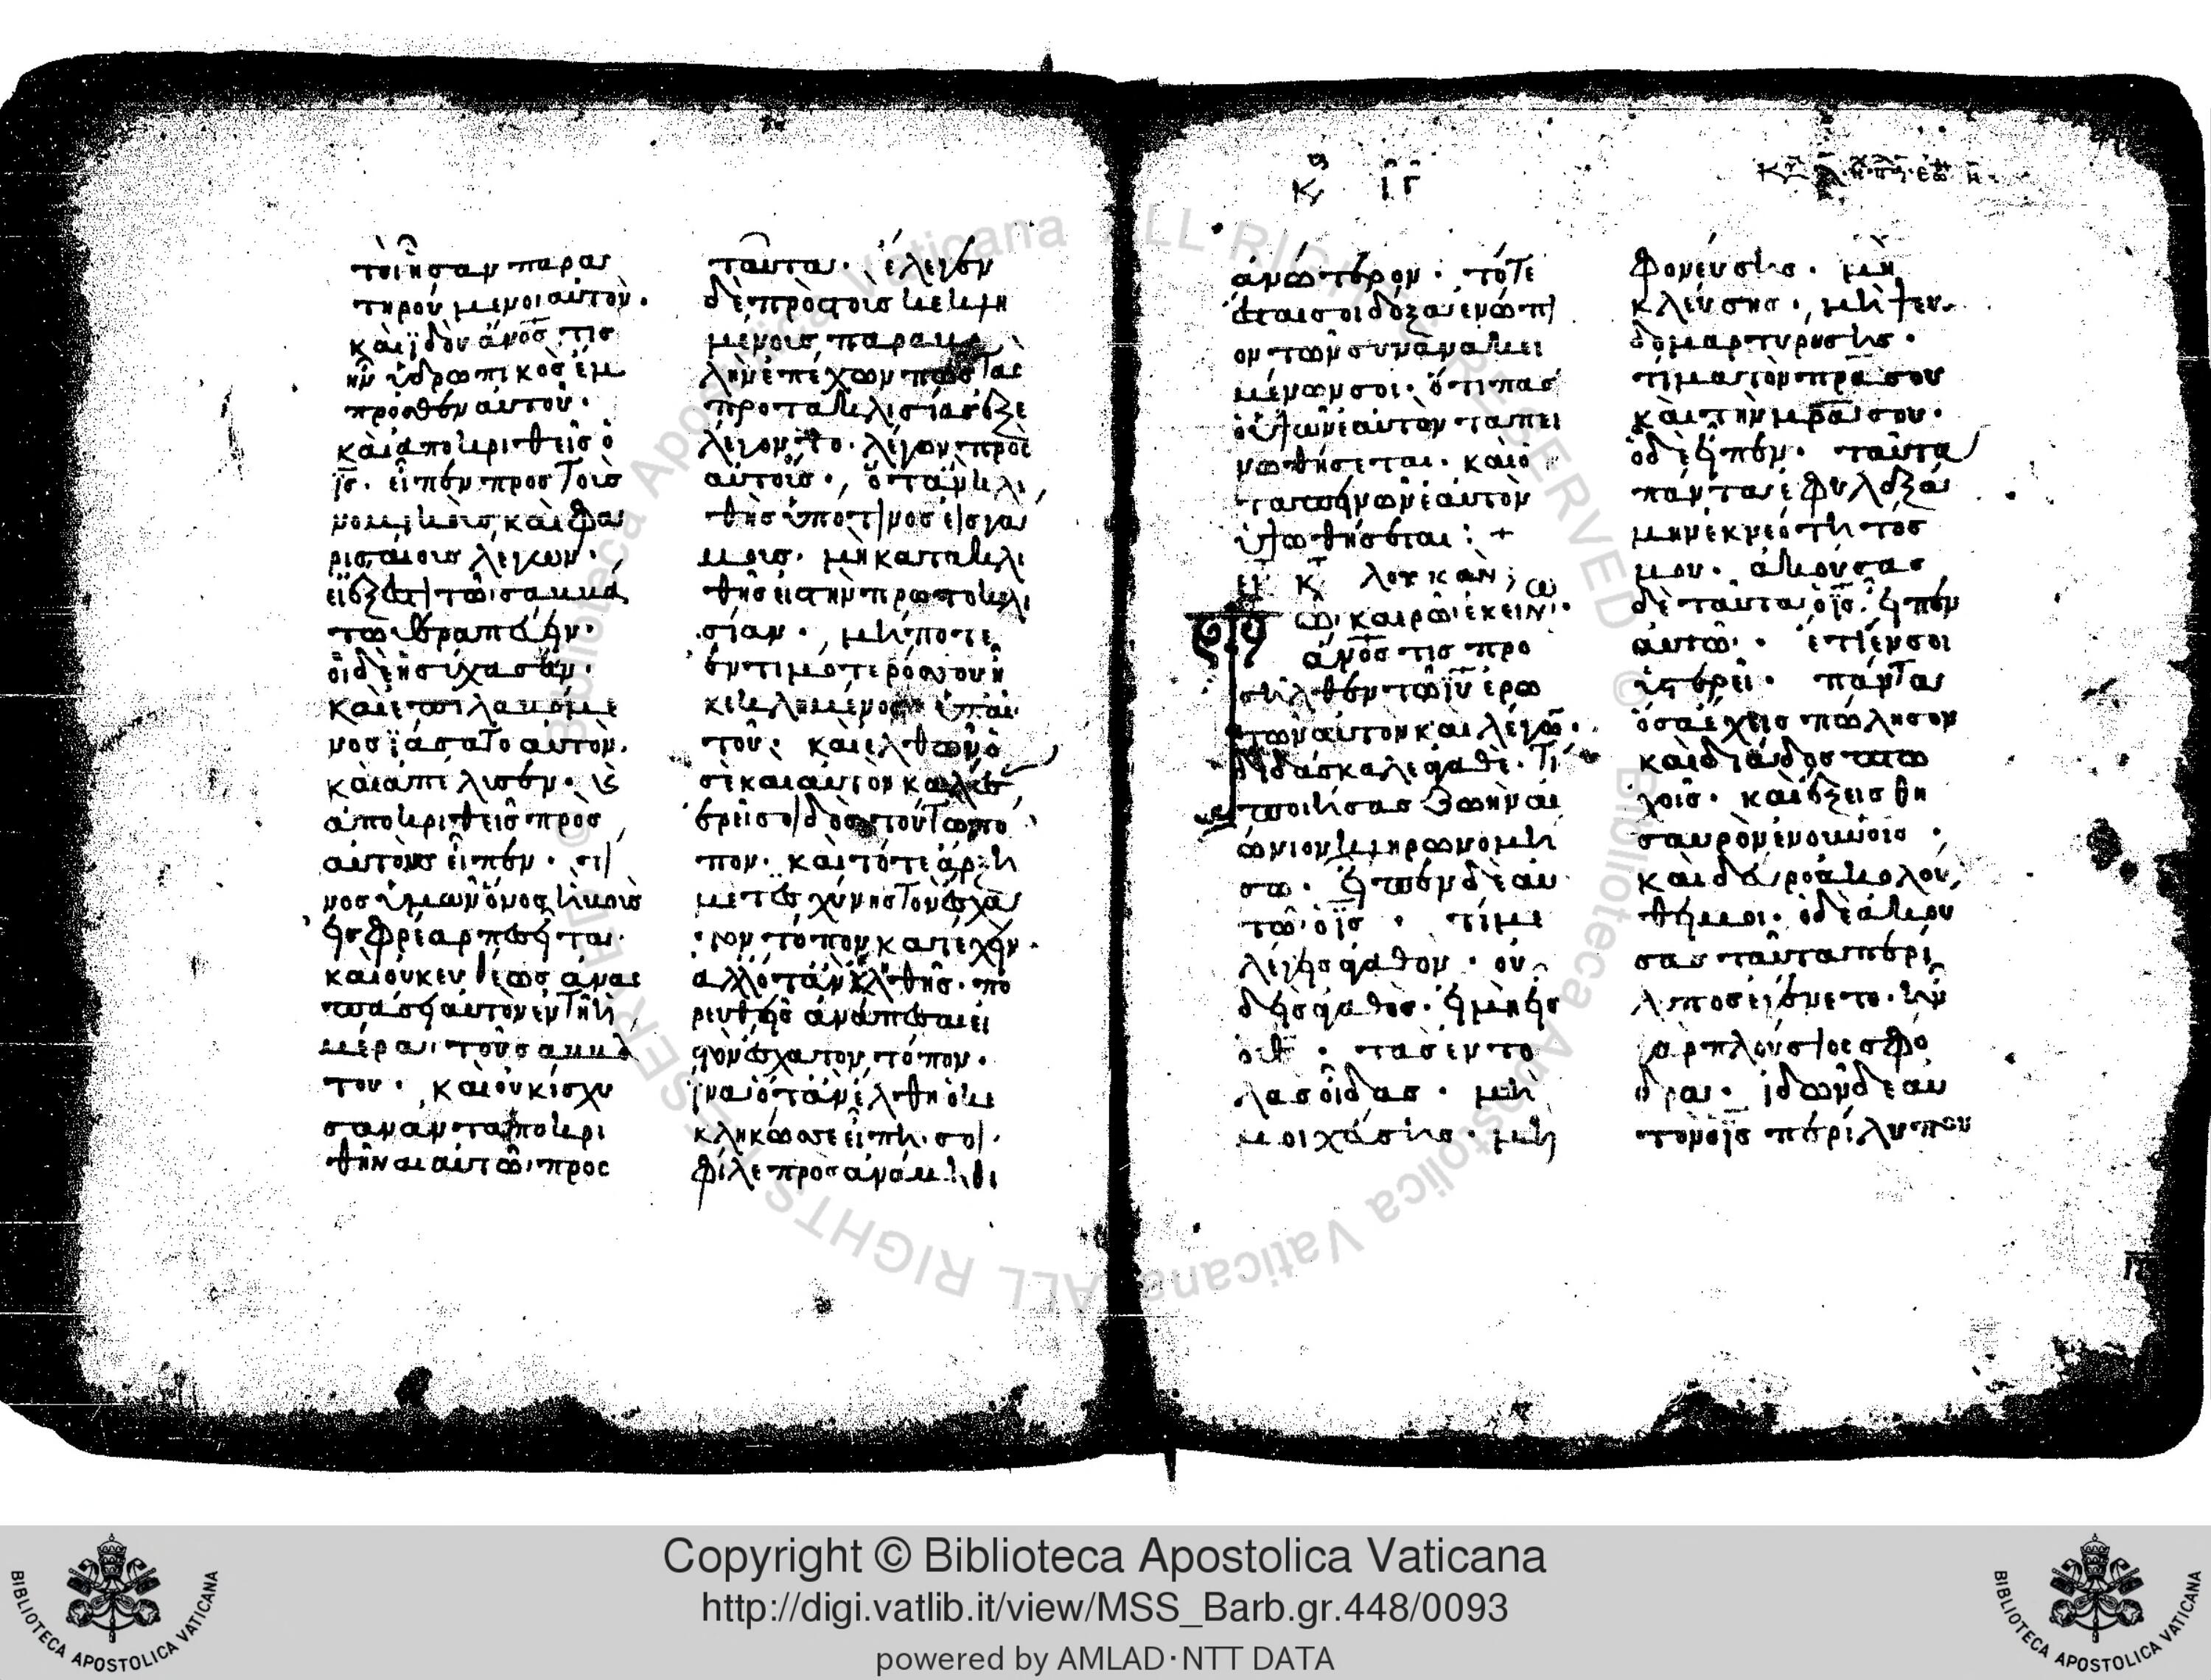 τοὶ ἦσαν παρα
τηρούμενοι αὐτόν.
καὶ ἰδοὺ ἄνος τις
ἦν ὑδρωπικὸς ἔμ
προσθεν αὐτοῦ.
καὶ ἀποκριθεὶς ὁ
ις. εἶπεν προς τοὺς
νομικοὺς καὶ φα
ρισαίους λέγων.
εἰ ἔξεστι τῶ σαββά
τω θεραπεύειν.
οἱ δὲ ἡσύχασαν.
καὶ ἐπιλαβόμε
νος ἰάσατο αὐτὸν.
καὶ ἀπέλυσεν. καὶ
ἀποκριθεὶς πρὸς
αὐτοὺς εἶπεν. τί
νος ὑμῶν ὄνος ἢ βοῦς
εἰς φρέαρ πεσεῖται.
καὶ οὐκ εὐθέως ἀνασ
πάσει αὐτὸν ἐν τῆ ἡ
μέρα τοῦ σαββά
του. καὶ οὐκ ἴσχυ
σαν ἀνταποκρι
θῆναι αὐτῶ προς
ταῦτα. ἔλεγεν
δὲ πρὸς τοὺς κεκλη
μένους παραβο
λὴν ἐπέχων πῶς τὰς
πρωτοκλισίας ἐξε
λέγοντο. λέγων πρὸς
αὐτούς. ὅταν κλη
θῆς ὑπό τινος εἰς γά
μους. μὴ κατακλι
θῆς εἰς τὴν πρωτοκλι
σίαν. μήποτε
ἐντιμότερός σου ἦ
κεκλημένος ὑπ' αὐ
τοῦ. καὶ ἐλθὼν ὁ
σὲ καὶ αὐτὸν καλέσας
ἐρεῖ σοι δὸς τούτω το
πον. καὶ τότε ἄρξη
μετ' αἰσχύνης τὸν ἔσχα
τον τόπον κατέχειν.
ἀλλ' ὅταν κληθῆς. πο
ρευθεὶς ἀνάπεσαι εἰ
τὸν ἔσχατον τόπον.
ἵνα ὅταν ἔλθη ὁ κε
κληκώς σε εἴπη σοι.
φίλε προσανάβηθι
Κυ ιγ
ἀνώτερον. τότε
ἔσται σοι δόξα ἐνώπι
ον τῶν συνανακει
μένων σοι. ὅτι πᾶς
ὁ ὑψῶν ἑαυτὸν ταπει
νωθήσεται. καὶ ὁ
ταπεινῶν ἑαυτὸν
ὑψωθήσεται: +
ἐκ τ λουκαν
Τῶ καιρῶ ἐκείνω.
ἄνος τις προ
σῆλθεν τῶ ιυ ἐρω
τῶν αὐτον και λέγων.
διδάσκαλε ἀγαθὲ. τί
ποιήσας ζωὴν αἰ
ώνιον κληρονομή
σω. εἶπεν δὲ αὐ
τῶ ὁ ις. τί με
λέγεις ἀγαθόν. οὐ
δεὶς ἀγαθὸς. εἰ μὴ εἷς
ὁ θς. τὰς ἐντο
λὰς οἶδας. μὴ
μοιχεύσης. μὴ
φονεύσης. μὴ
κλέψης. μὴ ψευ
δομαρτυρήσης.
τίμα τὸν πρα σου
καὶ τὴν μρα σου.
ὁ δὲ εἶπεν. ταῦτα
πάντα ἐφυλαξά
μην ἐκ νεότητος
μου. ἀκούσας
δὲ ταῦτα ὁ ις. εἶπεν
αὐτῶ. ἔτι ἕν σοι
ὑστερεῖ. πάντα
ὅσα ἔχεις πώλησον
καὶ διάδος πτω
χοῖς. καὶ ἕξεις θη
σαυρὸν ἐν οὐνοις.
καὶ δεῦρο ἀκολού
θει μοι. ὁ δὲ ἀκού
σας ταῦτα περί
λυπος ἐγένετο. ἦν
γὰρ πλούσιος σφό
δρα. ἰδὼν δὲ αὐ
τὸν ὁ ις περίλυπον
Copyright © Biblioteca Apostolica Vaticana
http://digi.vatlib.it/view/MSS_Barb.gr.448/0093
powered by AMLAD·NTT DATA
BIBLIOTECA APOSTOLICA VATICANA
BIBLIOTECA APOSTOLICA VATICANA